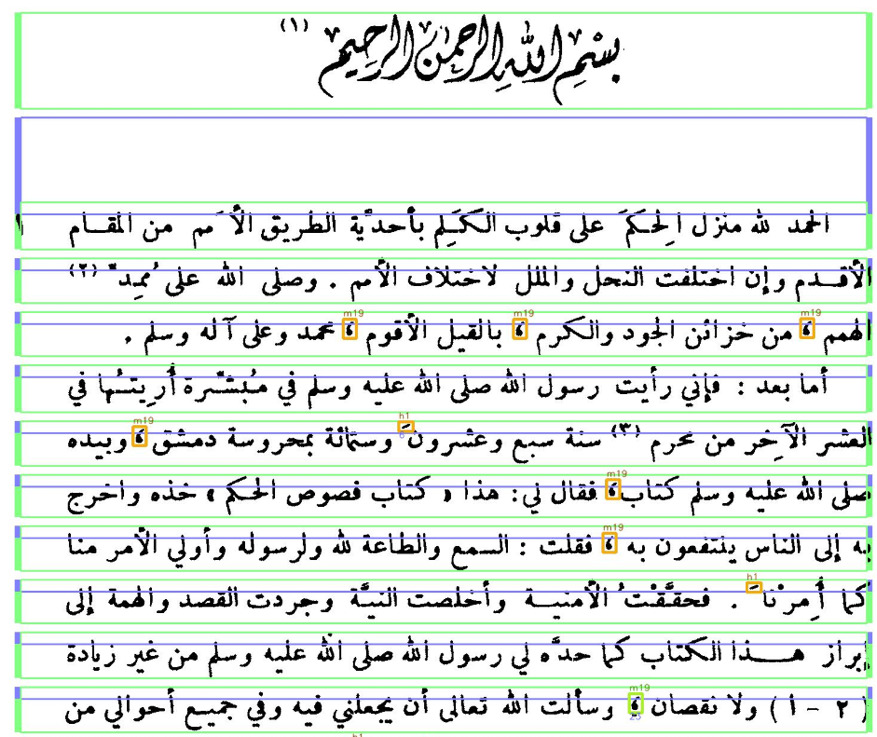 بسم الله الرحمن الرحيم (١)
الحمد لله منزل الحِكَمَ على قلوب الكَلِم بأحديَّة الطريق الأَمَم من المقام ١
الأقدم وإن اختلفت النحل والملل لاختلاف الأمم . وصلى الله على مُمِدِّ (٢)
الهمم ، من خزائن الجود والكرم ، بالقيل الأقوم ، محمد وعلى آله وسلم .
أما بعد : فإني رأيت رسول الله صلى الله عليه وسلم في مُبشِّرة أُرِيتُها في
العشر الآخِر من محرم (٣) سنة سبع وعشرون وستمائة بمحروسة دمشق ، وبيده
صلى الله عليه وسلم كتاب ، فقال لي: هذا « كتاب فصوص الحكم » خذه واخرج
به إلى الناس ينتفعون به ، فقلت : السمع والطاعة لله ولرسوله وأولي الأمر منا
كما أُمِرْنا . فحقَّقْتُ الأمنية وأخلصت النيَّة وجردت القصد والهمة إلى
إبراز هذا الكتاب كما حدَّه لي رسول الله صلى الله عليه وسلم من غير زيادة
(٢ - ١) ولا نقصان ، وسألت الله تعالى أن يجعلني فيه وفي جميع أحوالي من
m19
m19
m19
h1
m19
m19
m19
h1
m19
h1